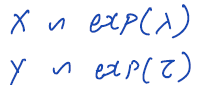 X ∼ exp(λ)
Y ∼ exp(τ)